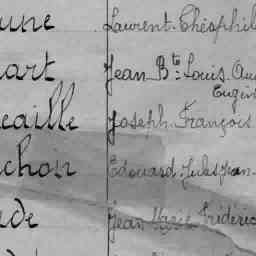 une Laurent Théophil
art Jean Bte Louis Au
Eugèn
eaille Joseph François
chon Edouard Jules Jean
de Jean Marie Frédéric